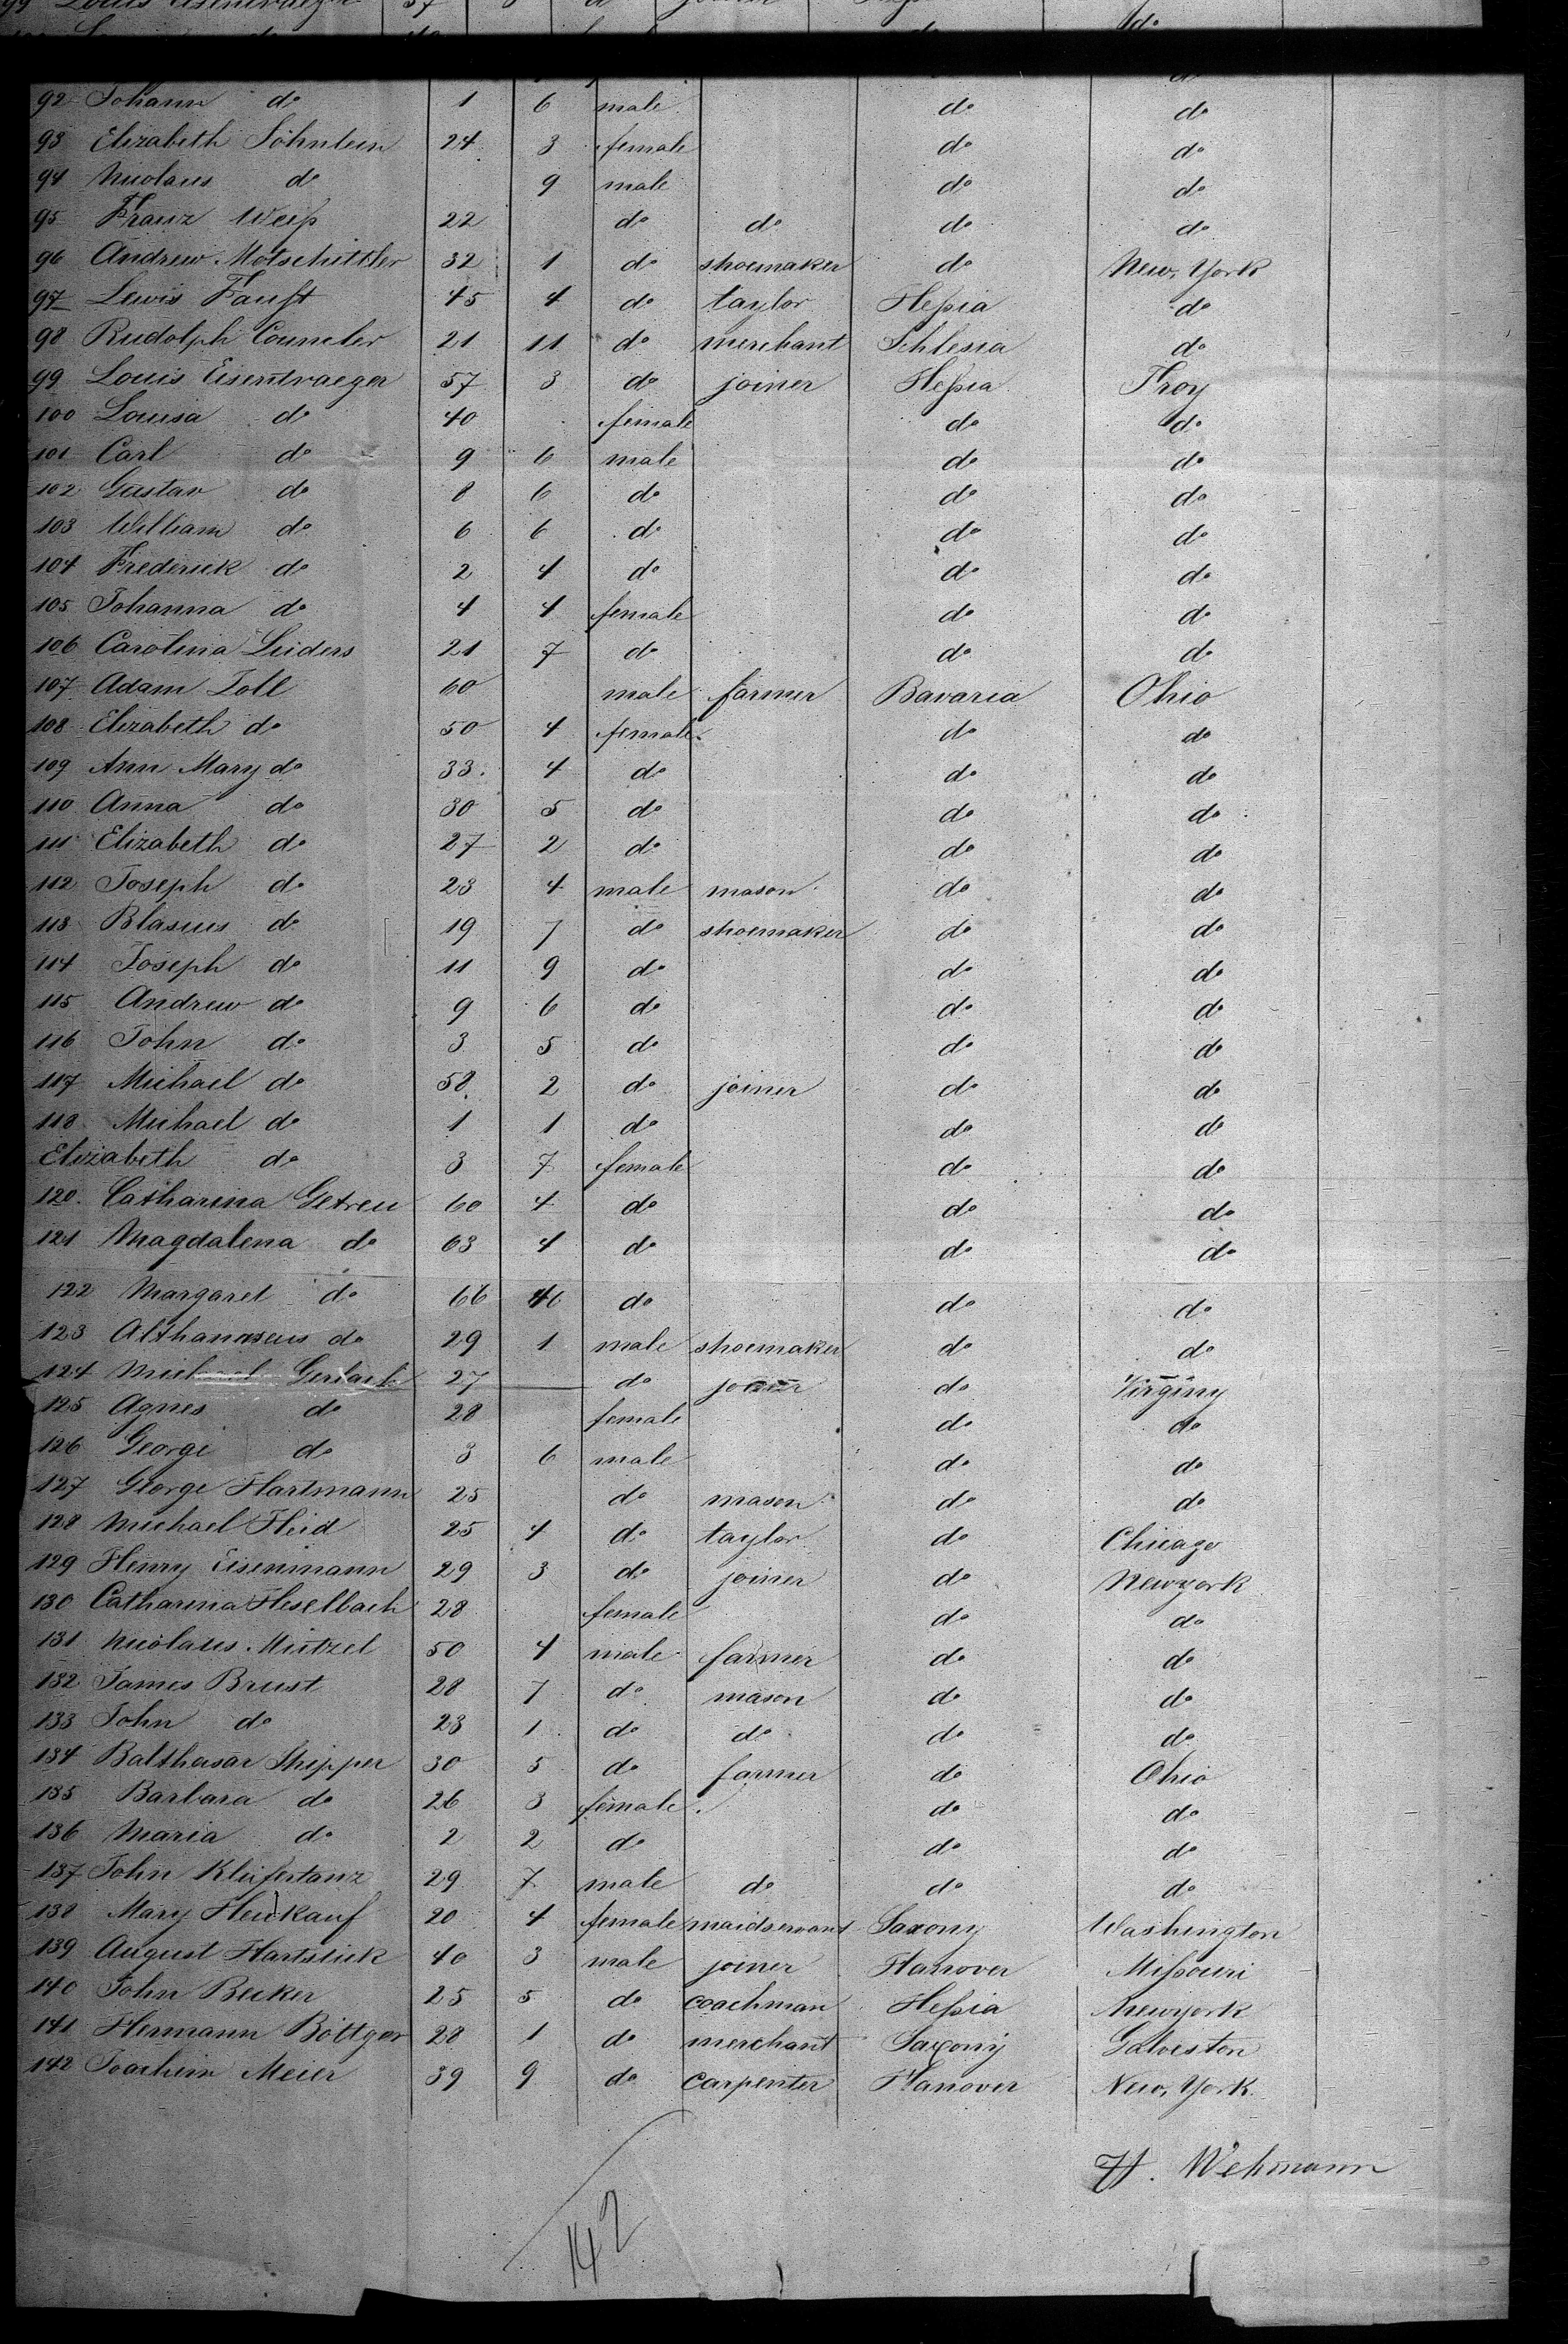 99 Louis Eisentraeger 57 3 do joiner
do
92 Johann do 1 6 male do do
93 Elizabeth Söhnlein 24 3 female do do
94 Nicolaus do 9 male do do
95 Franz Weiß 22 do do do do
96 Andrew Motschittler 32 1 do shoemaker do New York
97 Lewis Faust 45 4 do taylor Heßia do
98 Rudolph Councler 21 11 do merchant Schlesia do
99 Louis Eisentraeger 57 3 do joiner Heßia Troy
100 Louisa do 40 female do do
101 Carl do 9 6 male do do
102 Gustav do 8 6 do do do
103 William do 6 6 do do do
104 Frederick do 2 4 do do do
105 Johanna do 4 4 female do do
106 Carolina Leiders 21 7 do do do
107 Adam Zoll 60 male farmer Bavaria Ohio
108 Elizabeth do 50 4 female do do
109 Ann Mary do 33 4 do do do
110 Anna do 30 5 do do do
111 Elizabeth do 27 2 do do do
112 Joseph do 23 4 male mason do do
113 Blasius do 19 7 do shoemaker do do
114 Joseph do 11 9 do do do
115 Andrew do 9 6 do do do
116 John do 3 5 do do do
117 Michael do 58 2 do joiner do do
118 Michael do 1 1 do do do
Elizabeth do 3 7 female do do
120 Catharina Getreu 60 4 do do do
121 Magdalena do 63 4 do do do
122 Margaret do 66 do do do
123 Althanaseus do 29 1 male shoemaker do do
124 Michael Gerlach 27 do joiner do Virginy
125 Agnes do 28 female do do
126 George do 3 6 male do do
127 George Hartmann 25 do mason do do
128 Michael Heid 25 4 do taylor do Chicago
129 Henry Eisenmann 29 3 do joiner do Newyork
130 Catharina Heselbach 28 female do do
131 Nicolaus Mützel 50 4 male farmer do do
132 James Brust 28 7 do mason do do
133 John do 23 1 do do do do
134 Balthasar Shipper 30 5 do farmer do Ohio
135 Barbara do 26 3 female do do
136 Maria do 2 2 do do do
137 John Kleifertanz 29 7 male do do do
138 Mary Heukauf 20 4 female maidservant Saxony Washington
139 August Hartstick 40 3 male joiner Hanover Mißouri
140 John Becker 25 5 do coachman Heßia Newyork
141 Hermann Böttger 28 1 do merchant Saxony Galveston
142 Joachim Meier 39 9 do carpenter Hanover New York
H. Wehmann
142